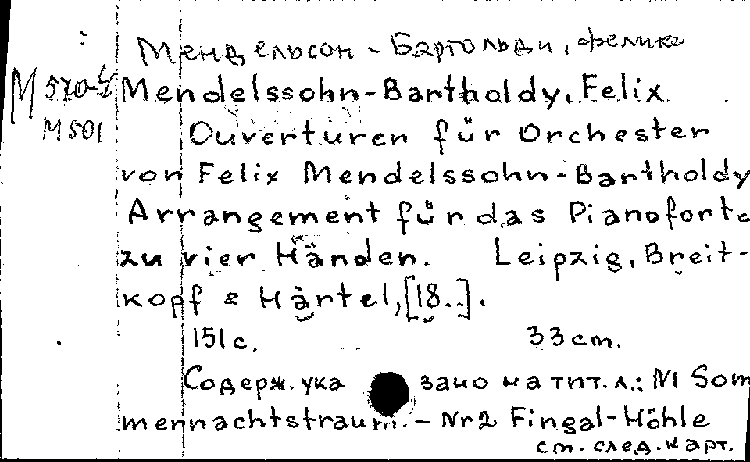 Мендельсон-Бартольди, Феликс
M 570-5 Mendelssohn-Bartholdy, Felix
M 501 Ouverturen für Orchester
von Felix Mendelssohn-Bartholdy
Arrangement für das Pianoforte
zu vier Händen. Leipzig, Breit-
kopf & Härtel, [18..].
151 с. 33 cm.
Содерж. указано на тит. л.: N1 Som
mernachtstraum. - Nr2 Fingal-Höhle
см. след. карт.